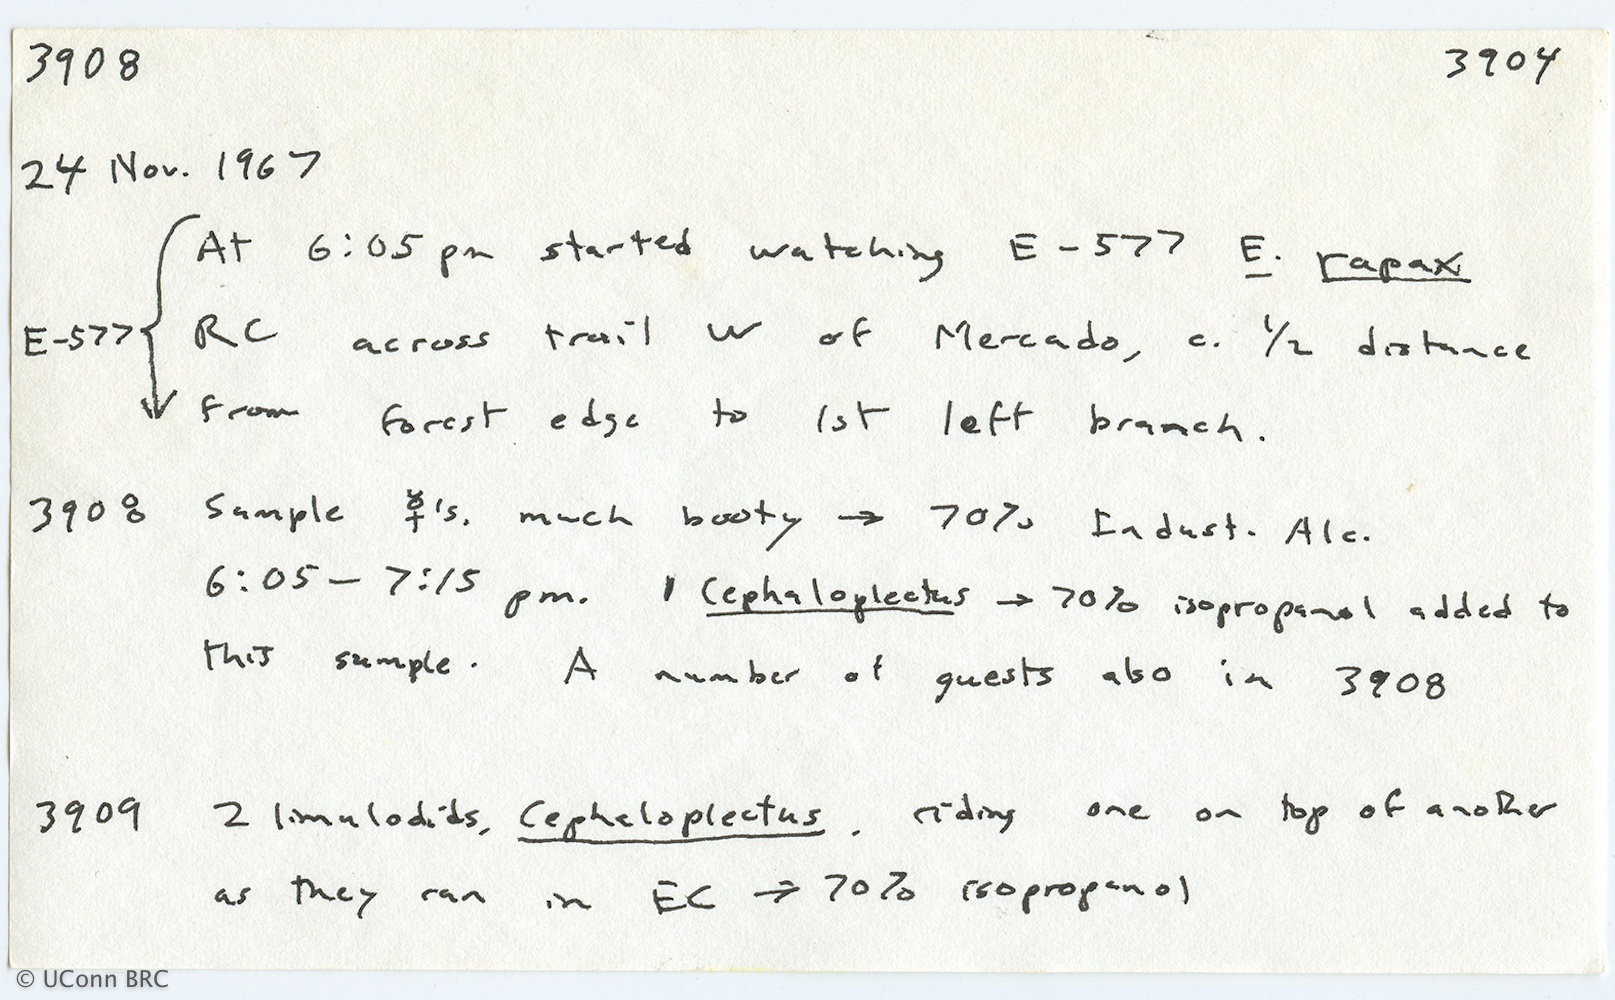 3908 3904
24 Nov. 1967
At 6:05 pm started watching E-577 E. rapax
E-577 RC across trail W of Mercado, c. 1/2 distance
from forest edge to 1st left branch.
3908 Sample ☿'s, much booty → 70% Indust. Alc.
6:05 - 7:15 pm. 1 Cephaloplectus → 70% isopropanol added to
this sample. A number of guests also in 3908
3909 2 limulodids, Cephaloplectus, riding one on top of another
as they ran in EC → 70% isopropanol
© UConn BRC